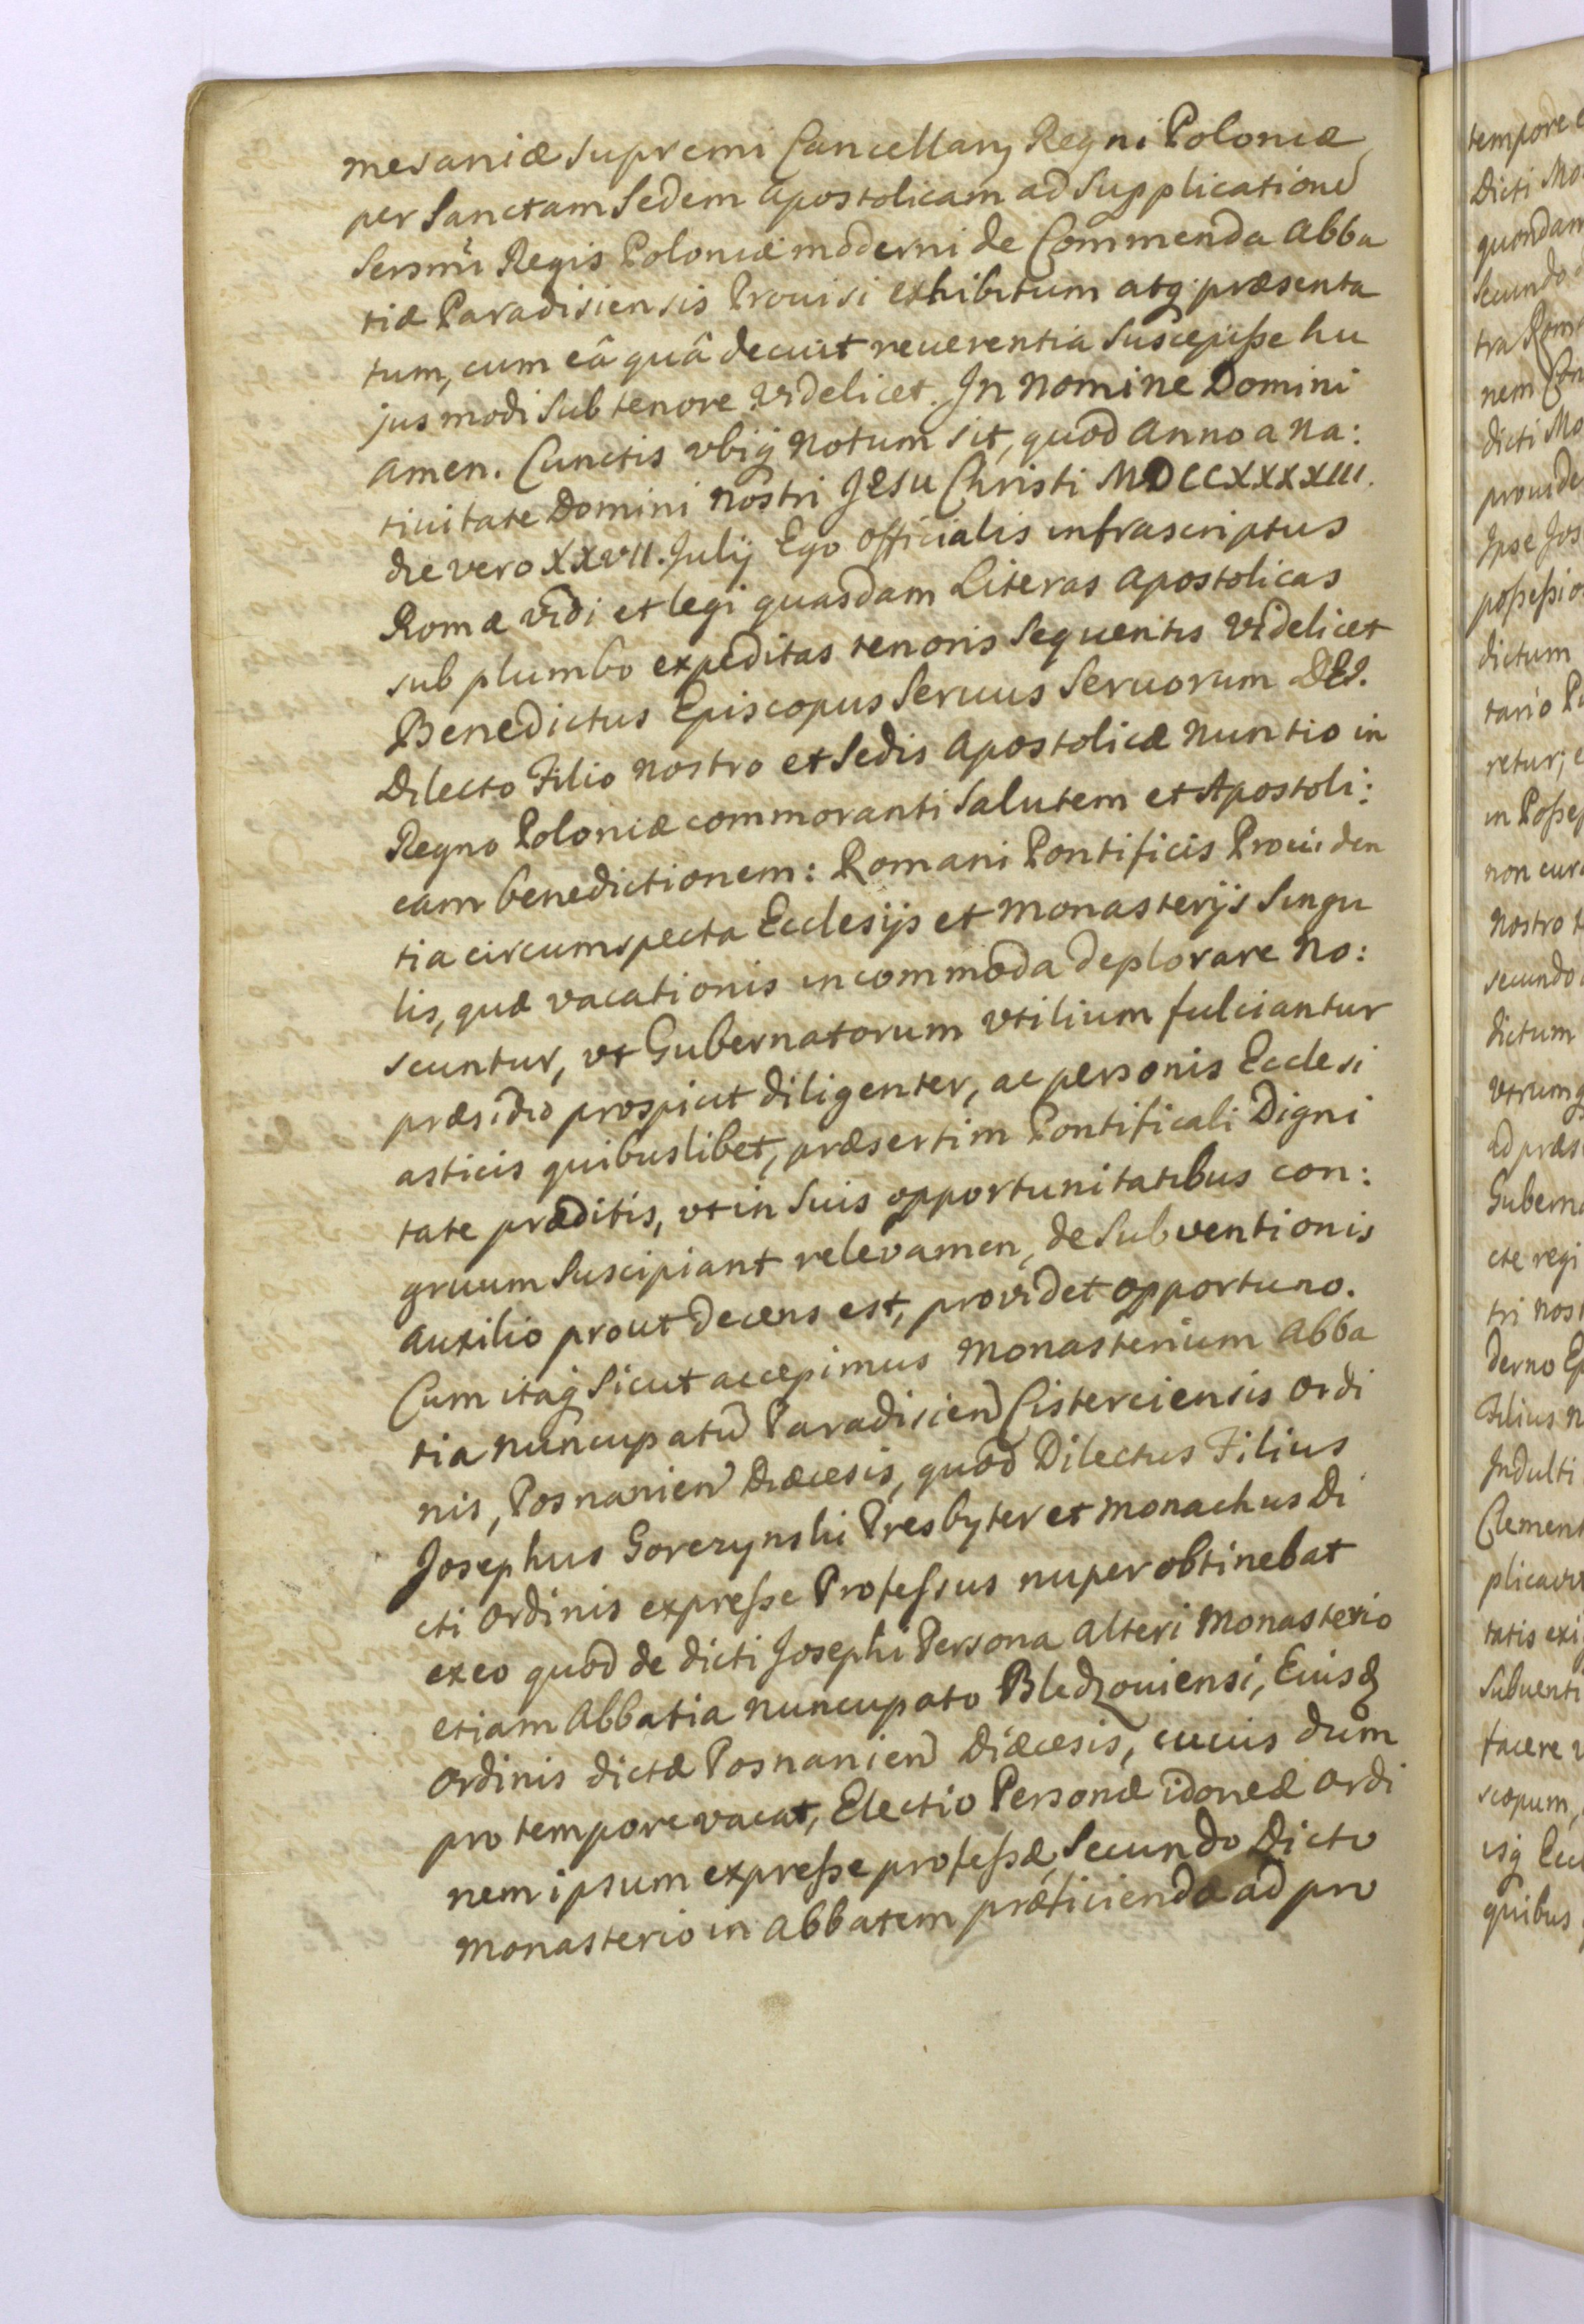 mesaniæ supremi Cancellarij Regni Poloniæ
per Sanctam Sedem Apostolicam ad Supplicatione͂
Sersm̃i Regis Poloniæ moderni de Commenda Abba
tiæ Paradisiensis Provisi exhibitum atq; præsenta
tum, cum eâ quâ decuit reuerentia Suscepisse hu
jusmodi sub tenore videlicet. In Nomine Domini
Amen. Cunctis vbiq; Notum sit, quod Anno a Na:
tiuitate Domini Nostri Jesu Christi MDCCXXXXIII.
die vero XXVII. Julij Ego Officialis infrascriptus
Romæ vidi et legi quasdam Literas Apostolicas
sub plumbo expeditas tenoris Sequentis Videlicet
Benedictus Episcopus Seruus Seruorum DEI.
Dilecto Filio Nostro et Sedis Apostolicæ Nuntio in
Regno Poloniæ commoranti Salutem et Apostoli:
cam benedictionem: Romani Pontificis Prouiden
tia circumspecta Ecclesijs et Monasterijs Singu
lis, quæ vacationis incommoda deplorare No:
scuntur, vt Gubernatorum vtilium fulciantur
præsidio prospicit diligenter, ac personis Ecclesi
asticis quibuslibet, præsertim Pontificali Digni
tate præditis, vt in Suis opportunitatibus con:
gruum Suscipiant relevamen, de Subventionis
Auxilio prout decens est, providet opportuno.
Cum itaq; Sicut accepimus Monasterium Abba
tia nuncupatu͂ Paradisien͂ Cisterciensis Ordi
nis, Posnanien͂ Diæcesis, quod Dilectus Filius
Josephus Gorczynski Presbyter et Monachus Di
cti Ordinis expresse Professus nuper obtinebat
ex eo quod de dicti Josephi Persona Alteri Monasterio
etiam Abbatia Nuncupato Bledzouiensi, Eiusd͂
Ordinis dictæ Posnanien͂ Diæcesis, cuius dum
pro tempore vacat, Electio Personæ idoneæ Ordi
nem ipsum expresse professæ, Secundo Dicto
Monasterio in Abbatem præficiendæ ad pro